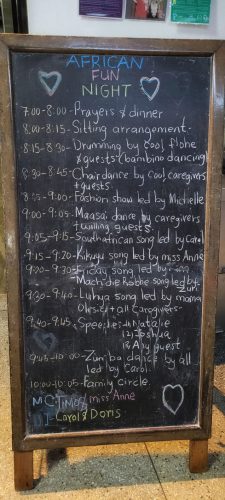 AFRICAN
FUN
NIGHT
7:00-8:00- Prayers & dinner
8:00-8:15- Sitting arrangement.
8:15-8:30- Drumming by cool
& guests (bambino dancing)
8:30-8:45- Chair dance by cool caregivers
+ guests
8:45-9:00- Fashion show led by Michelle
9:00-9:05- Maasai dance by caregivers
+ willing guests.
9:05-9:15- South african song led by Carol
9:15-9:20- Kikuyu song led by miss Anne
9:20-9:30- song led by
song led by
9:30-9:40- Luhya song led by mama
+ all Caregivers
9:40-9:45- Speeches Natalie
Joshua
Any guest
9:45-10:00- Zumba dance by all
led by Carol.
10:00-10:05- Family circle.
MC-Timo & miss Anne
DJ-Carol & Doris